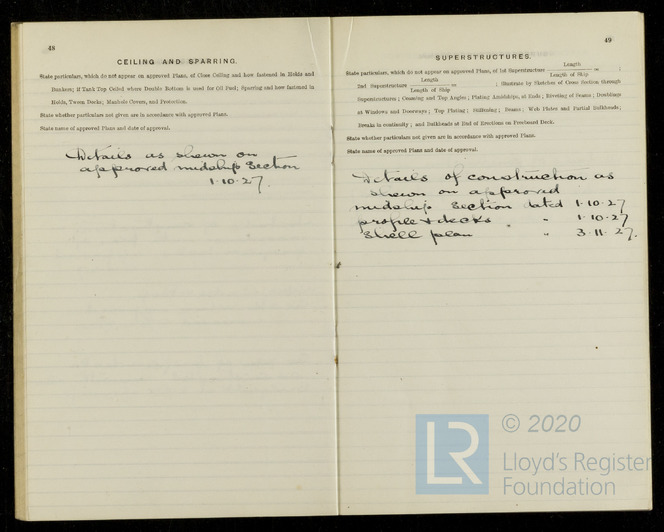 48
CEILING AND SPARRING.
State particulars, which do not appear on approved Plans, of Close Ceiling and how fastened in Holds and
Bunkers; if Tank Top Ceiled where Double Bottom is used for Oil Fuel; Sparring and how fastened in
Holds, Tween Decks; Manhole Covers, and Protection.
State whether particulars not given are in accordance with approved Plans.
State name of approved Plans and date of approval.
Details as shewn on
approved midship Section
1·10·27.
49
SUPERSTRUCTURES.
State particulars, which do not appear on approved Plans, of 1st Superstructure Length / Length of Ship = ;
2nd Superstructure Length / Length of Ship = ; illustrate by Sketches of Cross Section through
Superstructures; Coaming and Top Angles; Plating Amidships, at Ends; Riveting of Seams; Doublings
at Windows and Doorways; Top Plating; Stiffening; Beams; Web Plates and Partial Bulkheads;
Breaks in continuity; and Bulkheads at End of Erections on Freeboard Deck.
State whether particulars not given are in accordance with approved Plans.
State name of approved Plans and date of approval.
Details of construction as
shewn on approved
midship Section dated 1·10·27
profile & decks " " 1·10·27
Shell plan " " 3·11·27.
LR
© 2020
Lloyd's Register
Foundation